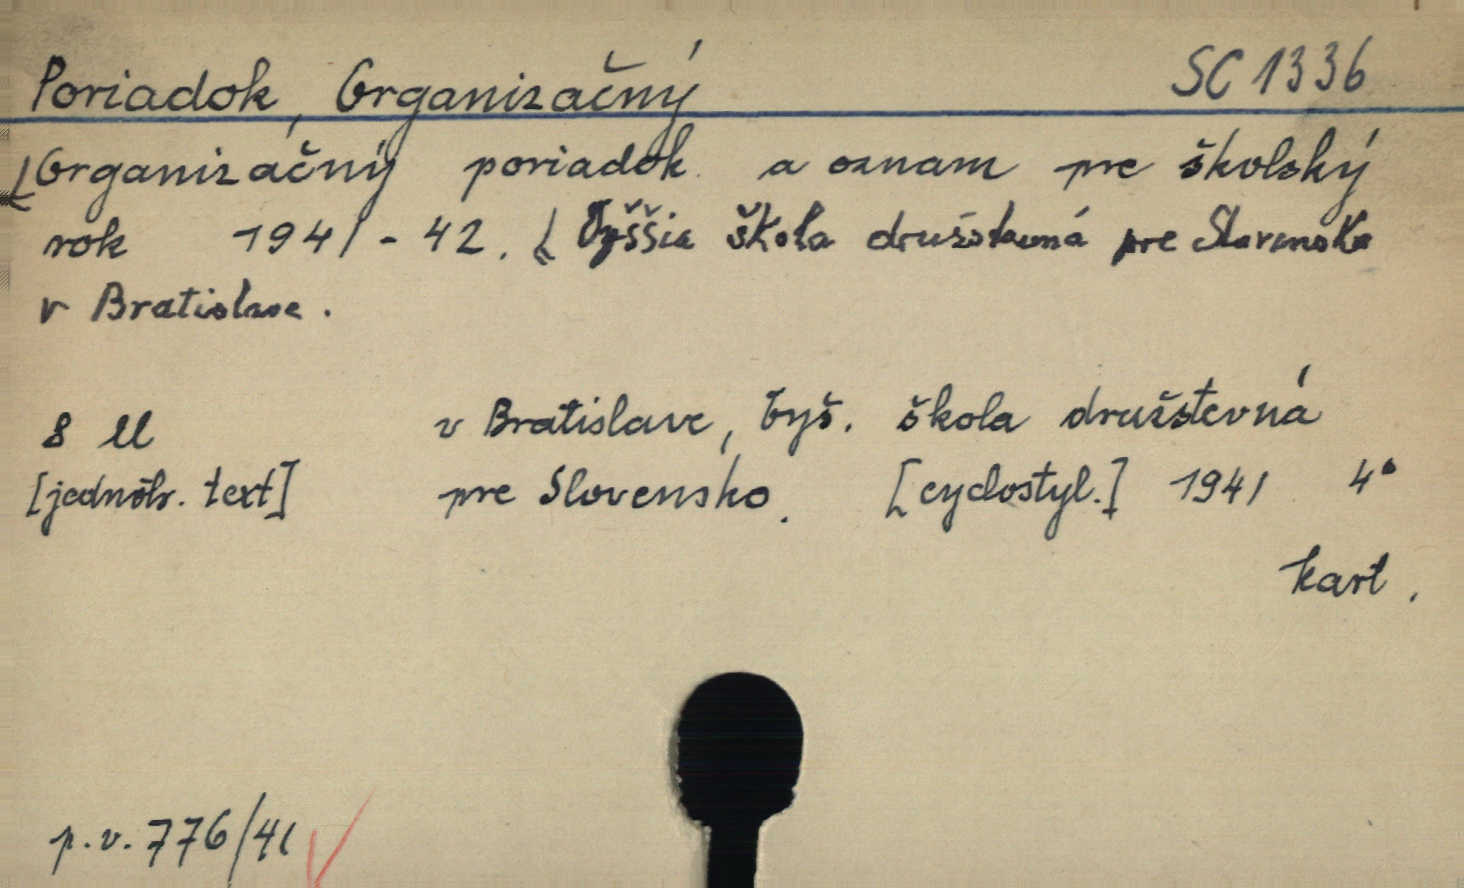 Poriadok, Organizačný SC 1336
[Organizačný poriadok a oznam pre školský
rok 1941-42. [Vyššia škola družstevná pre Slovensko
v Bratislave.
8 ll v Bratislave, Vyš. škola družstevná
[jednostr. text] pre Slovensko. [cyclostyl.] 1941 4°
kart.
p.v. 776/41